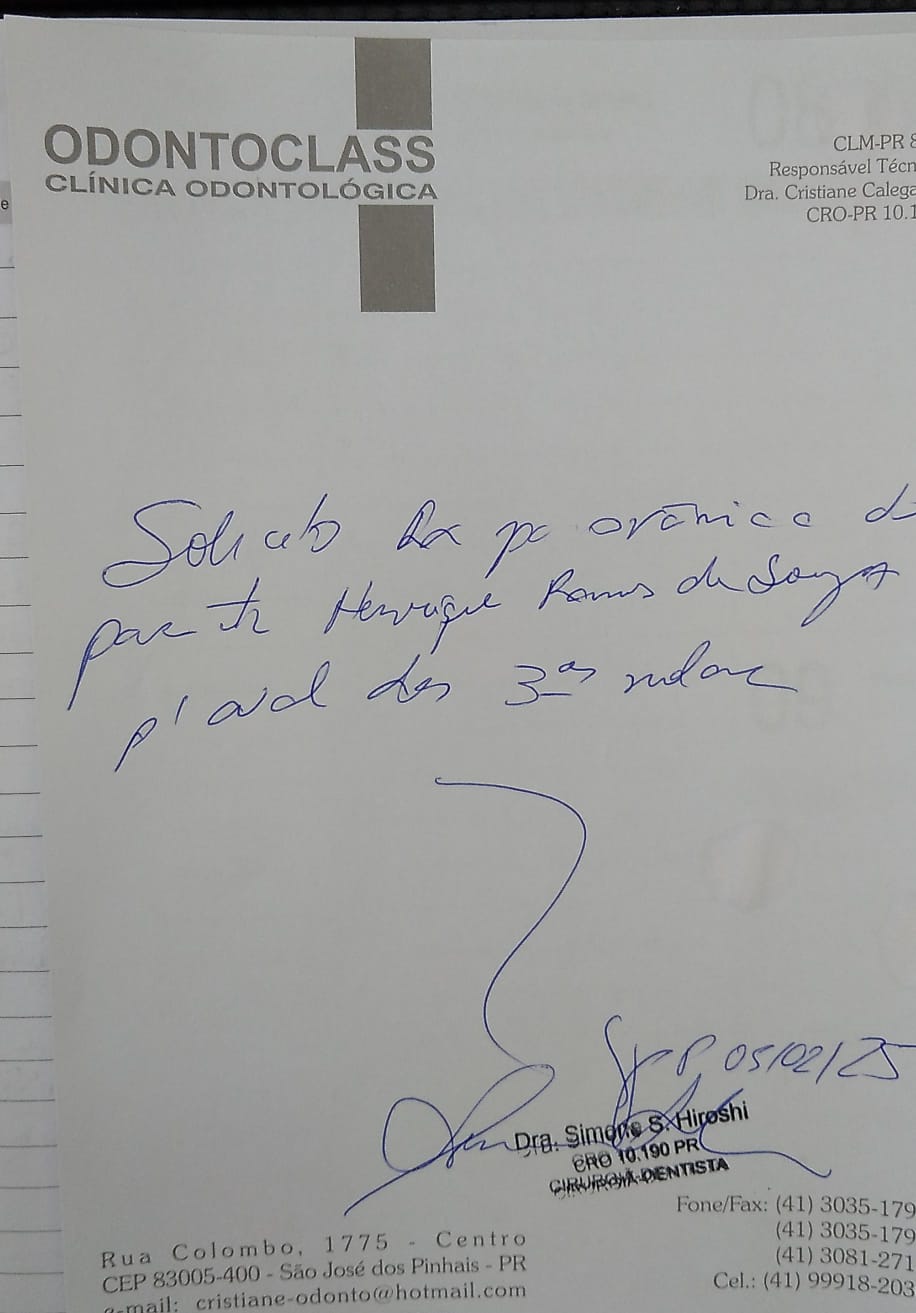 ODONTOCLASS
CLÍNICA ODONTOLÓGICA
CLM-PR 8
Responsável Técn
Dra. Cristiane Calega
CRO-PR 10.1
e
Solicito Rx panorâmica d
paciente Henrique Ramos de Souza
p/ aval dos 3ºs molares
SJP, 05/02/25
Dra. Simone S. Hiroshi
CRO 10.190 PR
CIRURGIÃ-DENTISTA
Fone/Fax: (41) 3035-179
(41) 3035-179
(41) 3081-271
Cel.: (41) 99918-203
Rua Colombo, 1775 - Centro
CEP 83005-400 - São José dos Pinhais - PR
e-mail: cristiane-odonto@hotmail.com